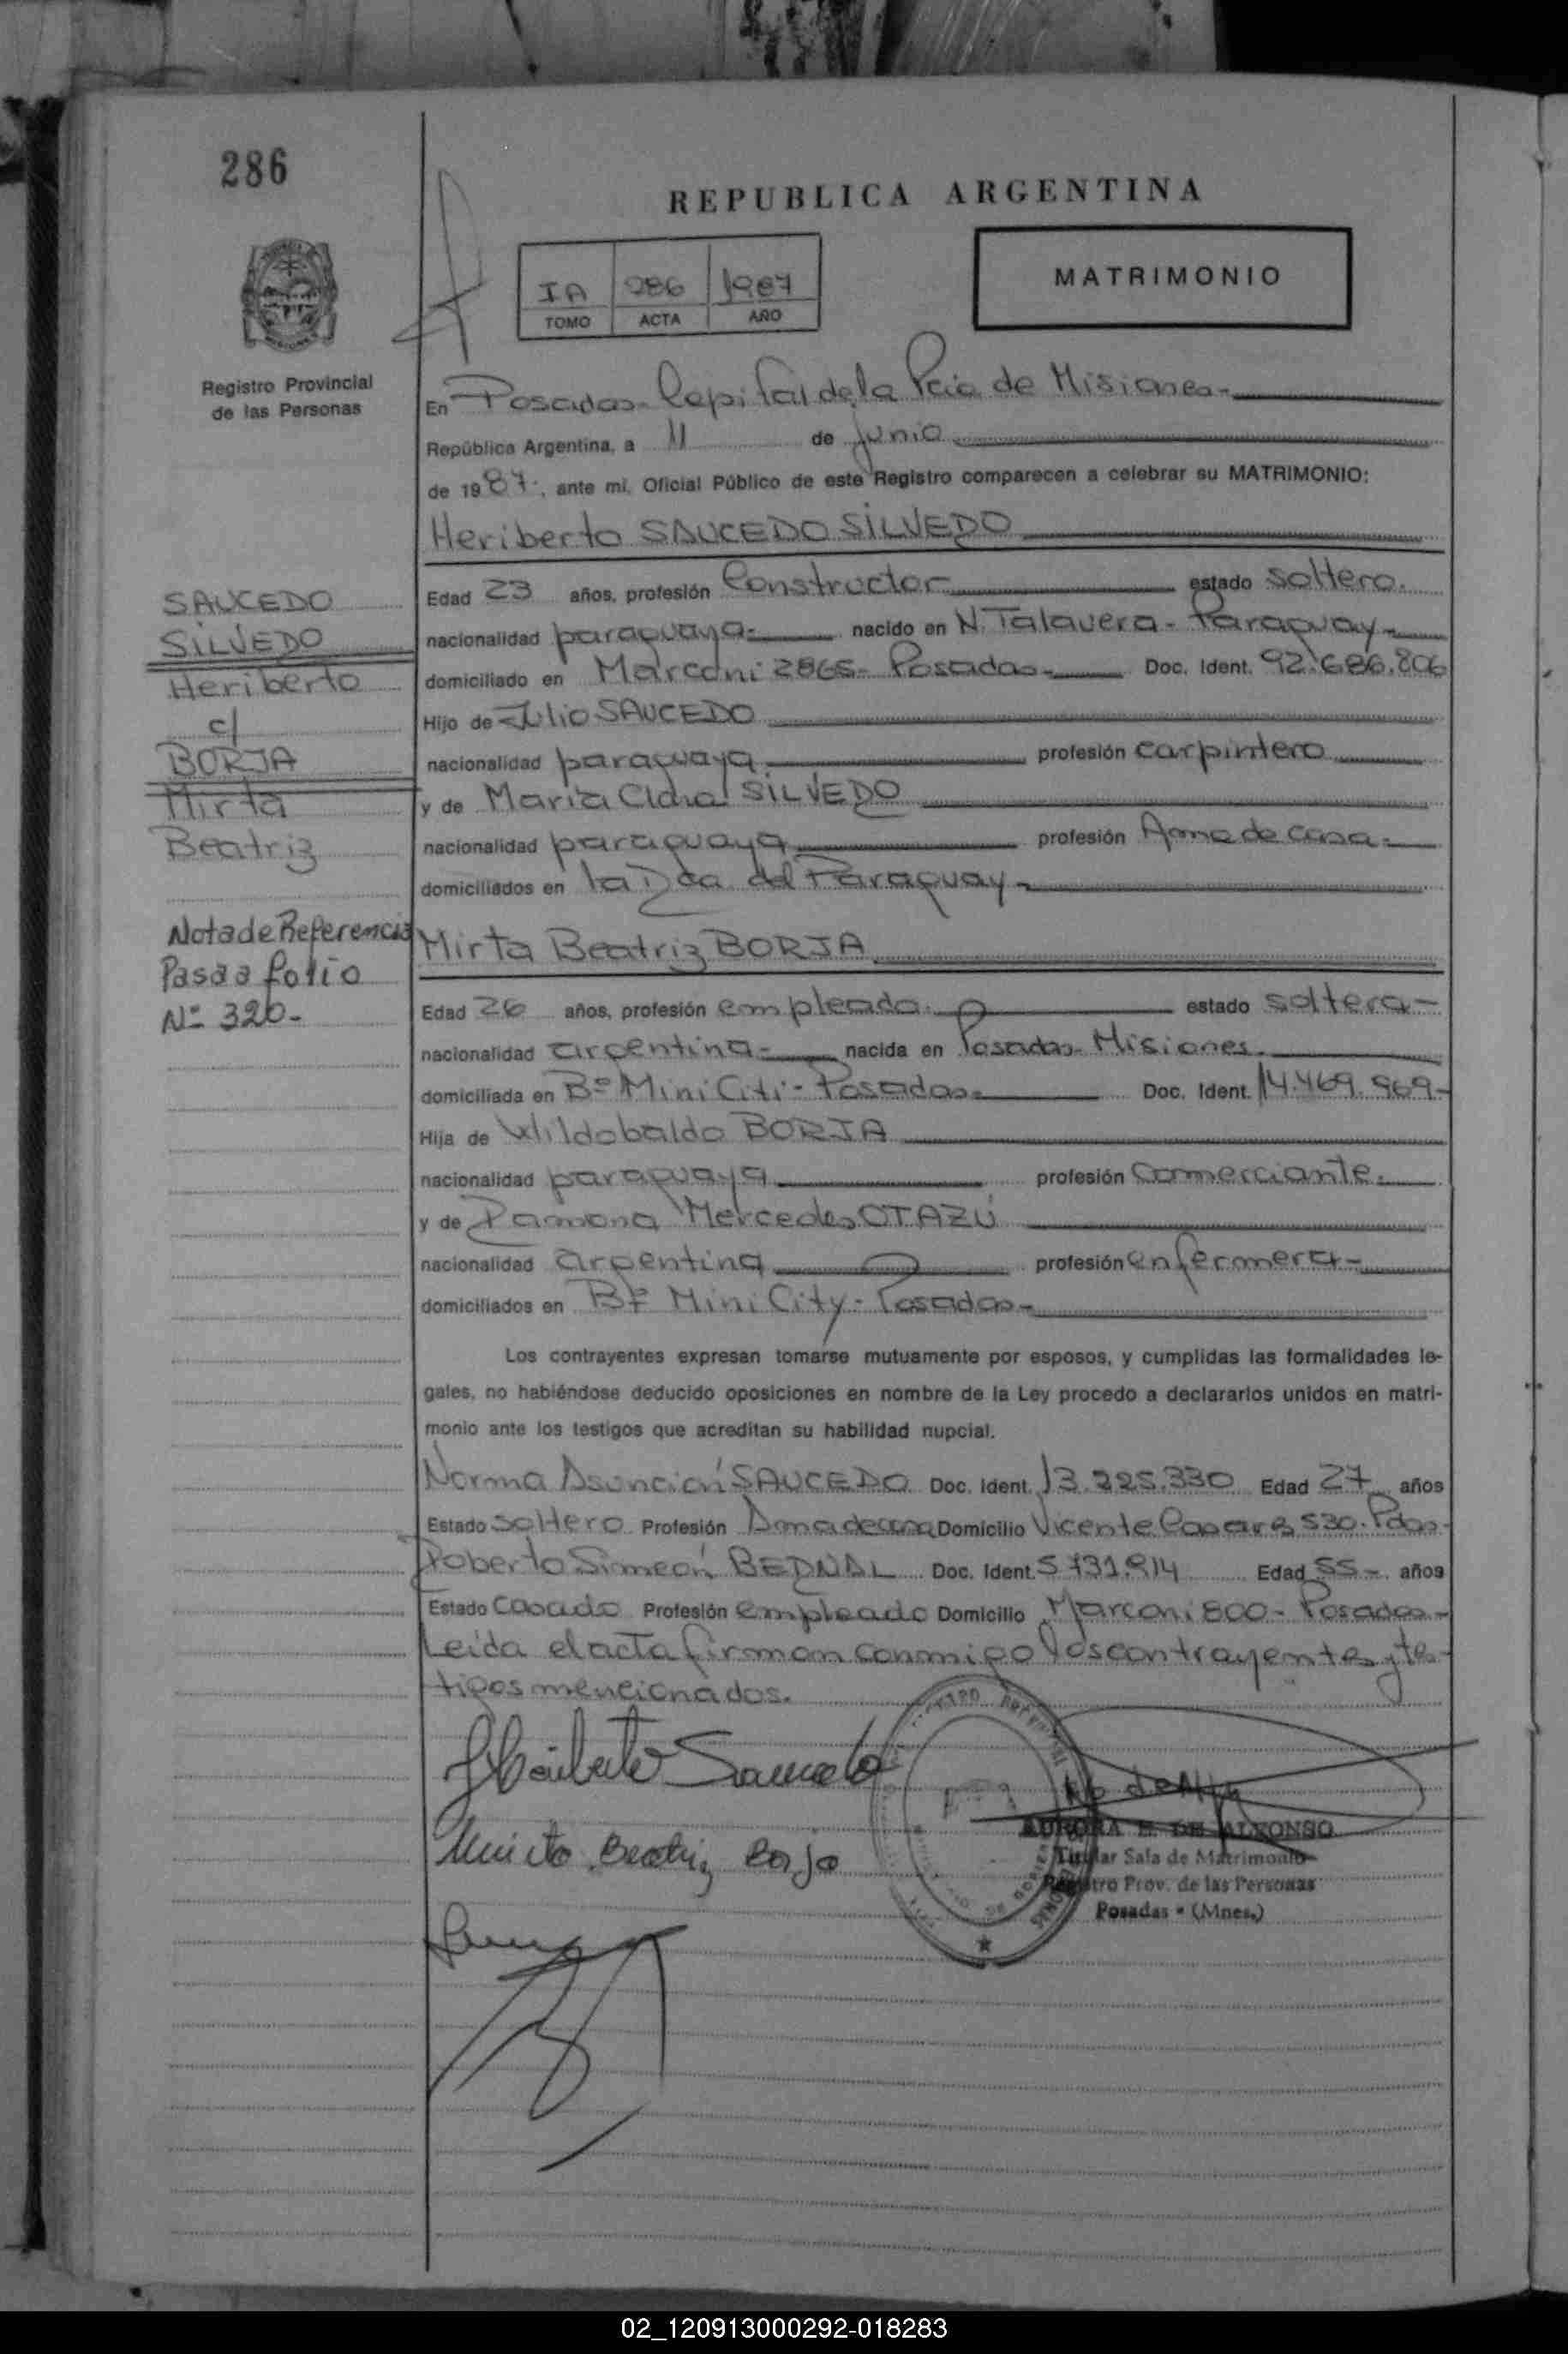 286
REPUBLICA ARGENTINA
IA 286 1987
TOMO ACTA AÑO
MATRIMONIO
Registro Provincial
de las Personas
En Posadas- Capital de la Pcia de Misiones-
República Argentina, a 11 de junio
de 1987, ante mí, Oficial Público de este Registro comparecen a celebrar su MATRIMONIO:
Heriberto SAUCEDO SILVEDO
SAUCEDO
SILVEDO
Heriberto
c/
BORJA
Mirta
Beatriz
Nota de Referencia
Pasa a folio
Nº 320-
Edad 23 años, profesión Constructor estado soltero.
nacionalidad paraguaya- nacido en N. Talavera- Paraguay-
domiciliado en Marconi 2865- Posadas- Doc. Ident. 92.686.806
Hijo de Julio SAUCEDO
nacionalidad paraguaya profesión carpintero
y de María Clara SILVEDO
nacionalidad paraguaya profesión Ama de casa-
domiciliados en la Rca del Paraguay-
Mirta Beatriz BORJA
Edad 26 años, profesión empleada. estado soltera-
nacionalidad argentina- nacida en Posadas- Misiones.
domiciliada en Bº Mini Citi- Posadas- Doc. Ident. 14.469.969-
Hija de Wildobaldo BORJA
nacionalidad paraguaya profesión Comerciante.
y de Ramona Mercedes OTAZÚ
nacionalidad argentina profesión enfermera-
domiciliados en Bº Mini City- Posadas-
Los contrayentes expresan tomarse mutuamente por esposos, y cumplidas las formalidades le-
gales, no habiéndose deducido oposiciones en nombre de la Ley procedo a declararlos unidos en matri-
monio ante los testigos que acreditan su habilidad nupcial.
Norma Asunción SAUCEDO Doc. Ident. 13.225.330 Edad 27 años
Estado soltero Profesión Ama de casa Domicilio Vicente Casares 530. Pdas-
Roberto Simeón BEDNAL Doc. Ident. 5.731.914 Edad 55- años
Estado Casado Profesión empleado Domicilio Marconi 800- Posadas-
Leída el acta firman conmigo los contrayentes y tes-
tigos mencionados.
Heriberto Saucedo
Mirta Beatriz Borja
AURORA E. DE ALFONSO
Titular Sala de Matrimonio
Registro Prov. de las Personas
Posadas - (Mnes.)
02_120913000292-018283